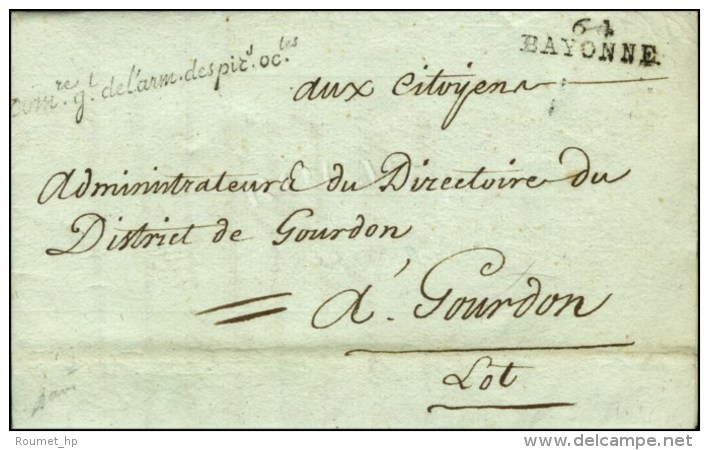 64
BAYONNE
Com.re g.l del'arm.despir.s oc.les
aux Citoyens
Administrateurs du Directoire du
District de Gourdon
A Gourdon
Lot
Roumet_hp
www.delcampe.net